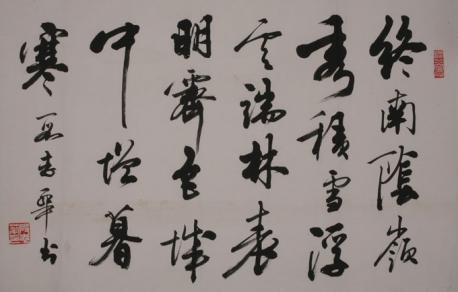 終南陰嶺
秀積雪浮
云端林表
明霽色城
中增暮
寒 志華书